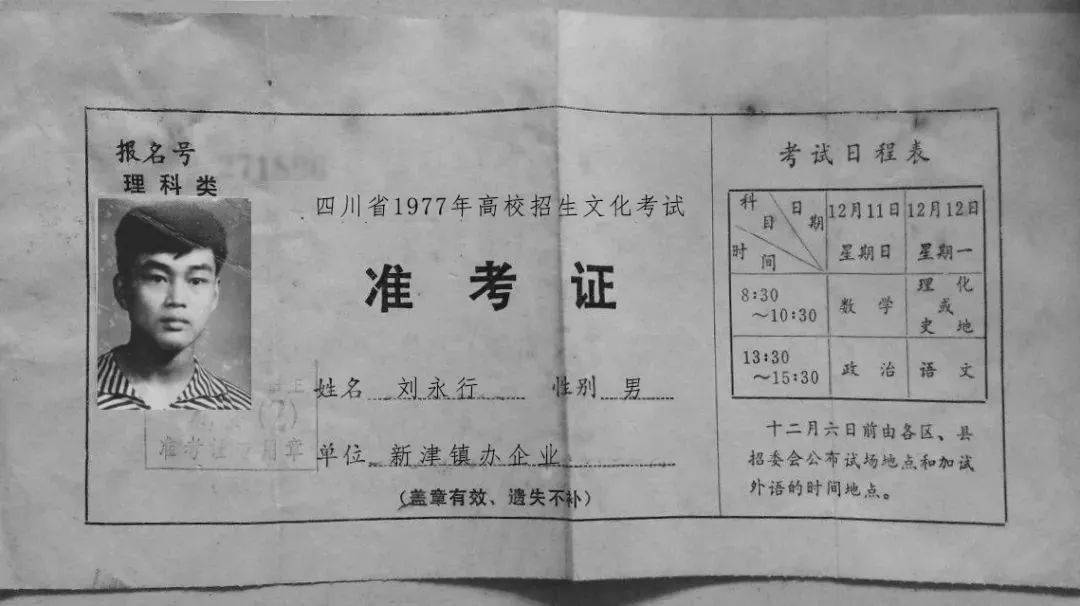 报名号
理科类
四川省1977年高校招生文化考试
准考证
姓名 刘永行 性别 男
单位 新津镇办企业
(盖章有效、遗失不补)
准考证专用章
考试日程表
科目 日期 时间 12月11日 星期日 12月12日 星期一
8:30～10:30 数学 理化或史地
13:30～15:30 政治 语文
十二月六日前由各区、县
招委会公布试场地点和加试
外语的时间地点。